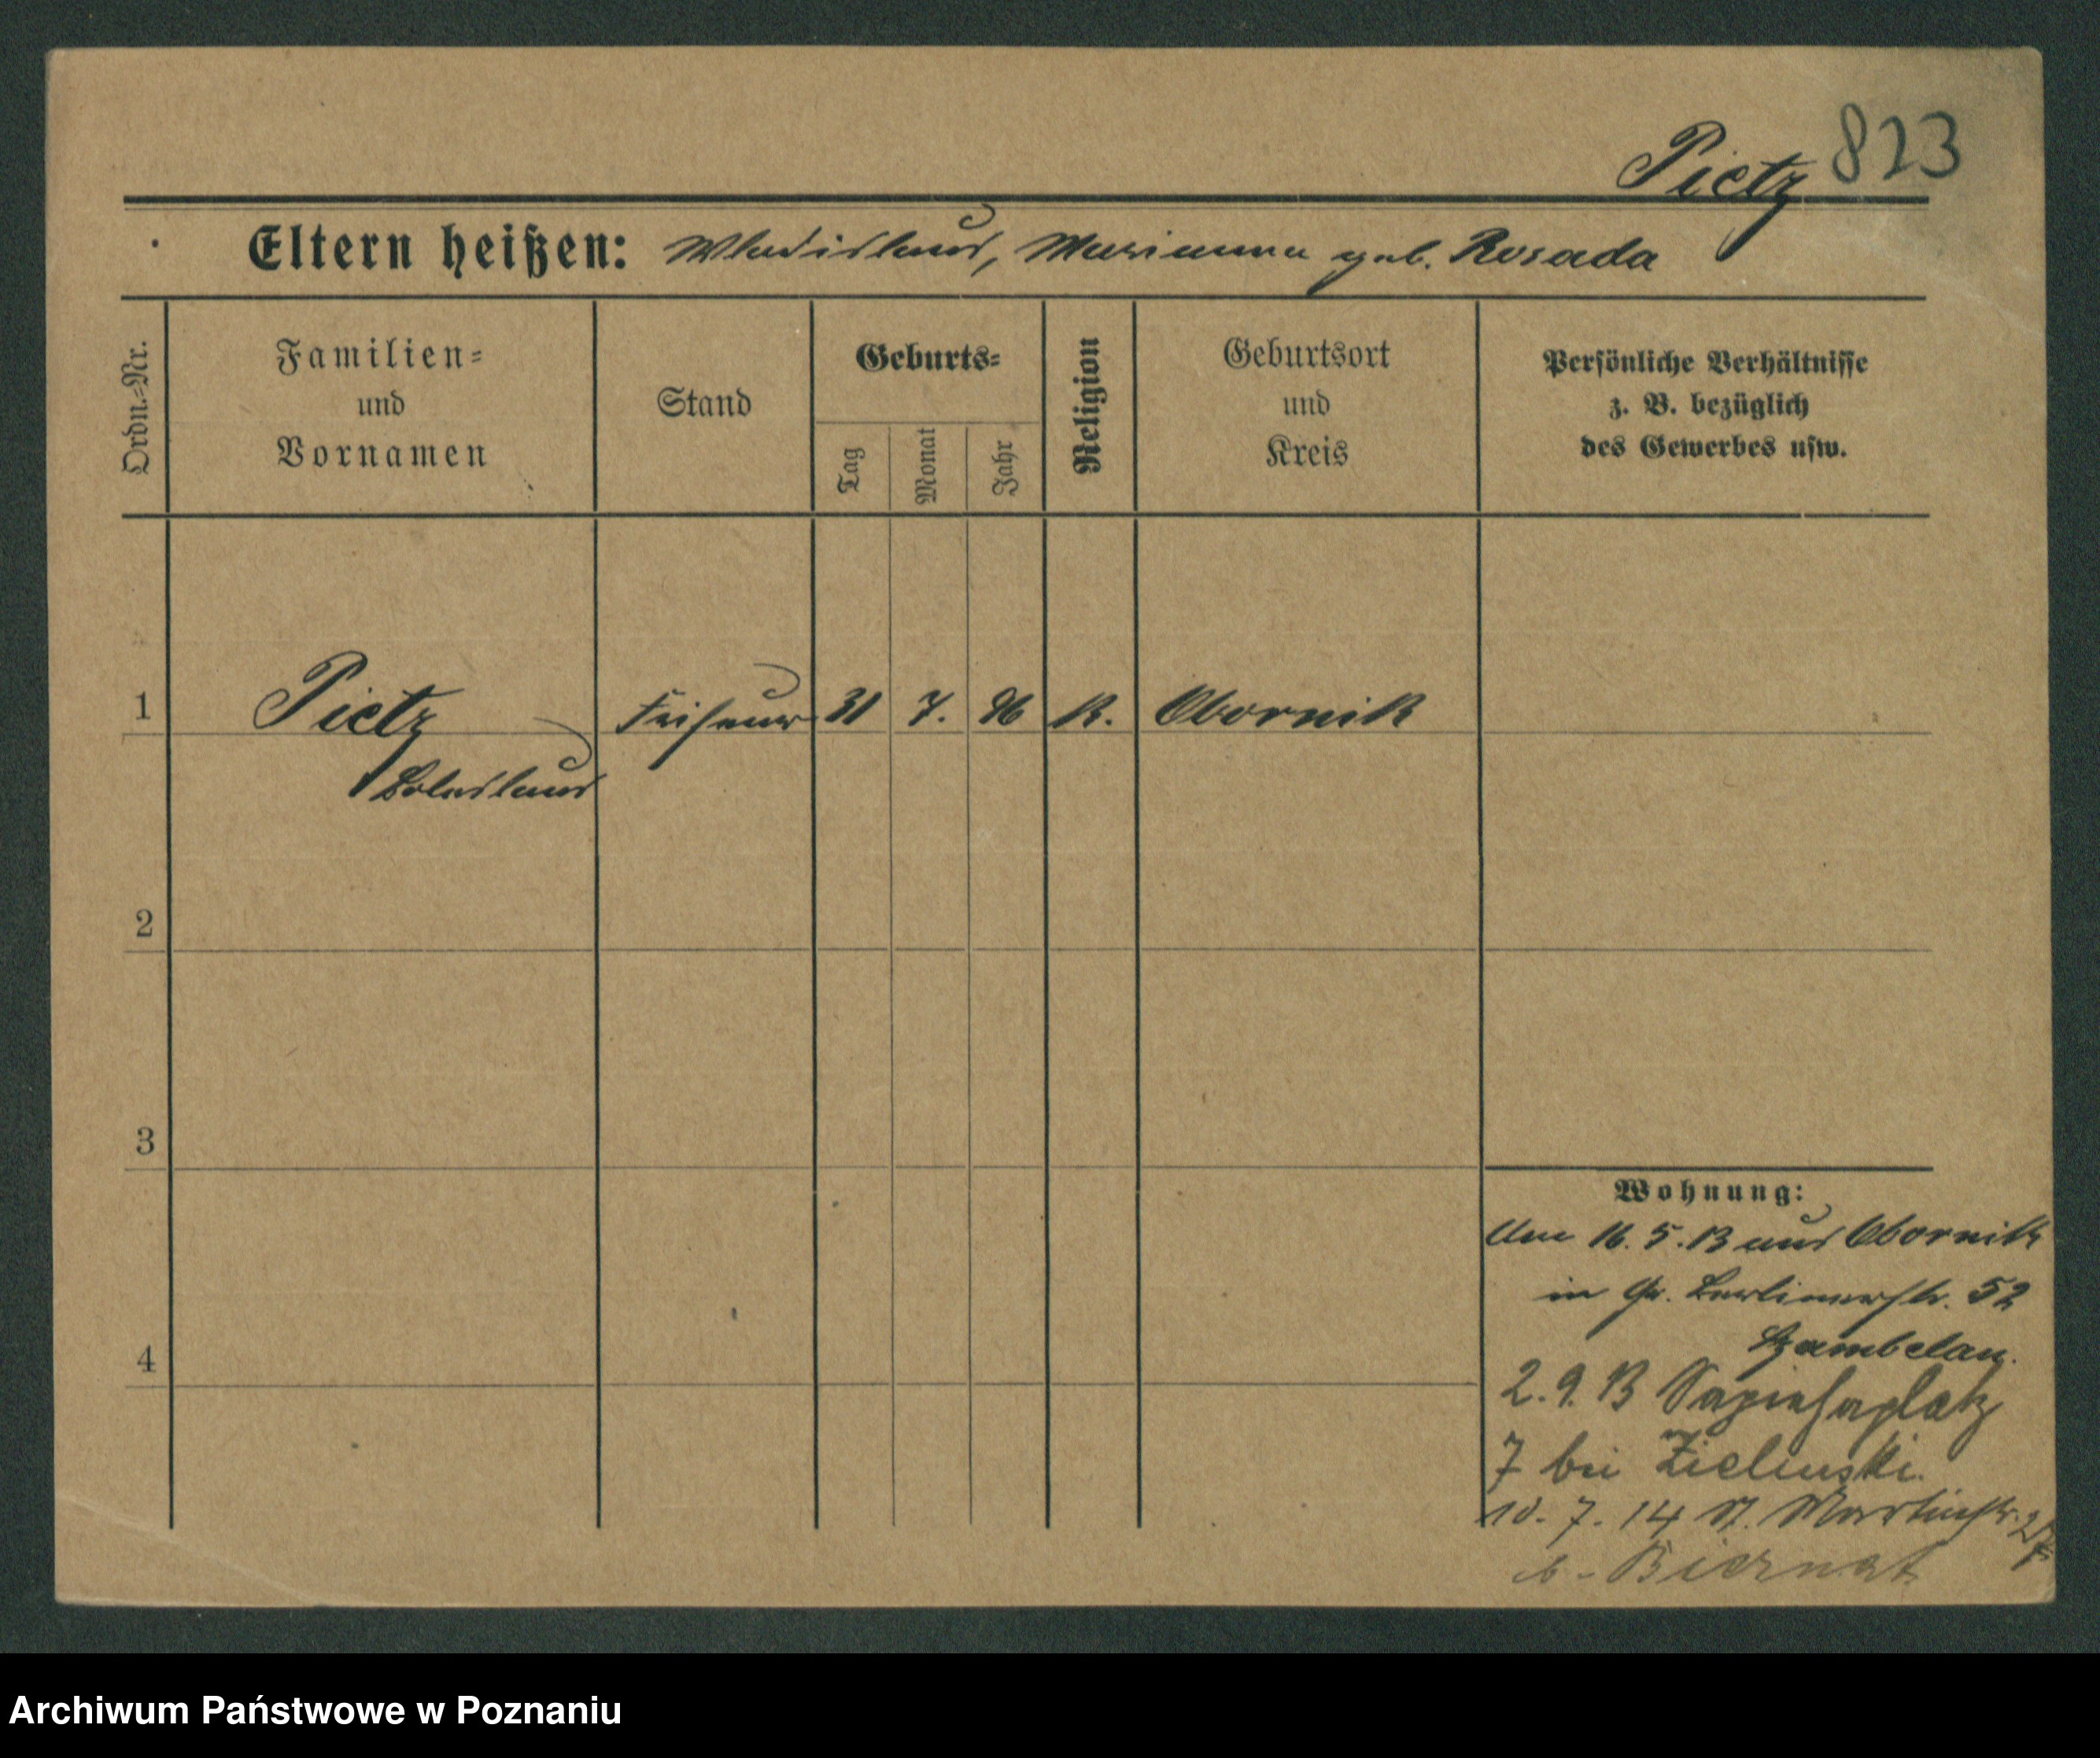 Pietz 823
Eltern heißen: Wladislaus, Marianna geb. Rosada
Ordn.-Nr.
Familien-
und
Vornamen
Stand
Geburts-
Tag
Monat
Jahr
Religion
Geburtsort
und
Kreis
Persönliche Verhältnisse
z. B. bezüglich
des Gewerbes usw.
1 Pietz Friseur 31 7. 96 K. Obornik
Boleslaus
2
3
4
Wohnung:
Am 16. 5. 13 aus Obornik
in Gr. Berlinerstr. 52
Szambelan.
2. 9. 13 Sapiehaplatz
7 bei Zielinski.
10. 7. 14 St. Martinstr.
b. Biernat
Archiwum Państwowe w Poznaniu